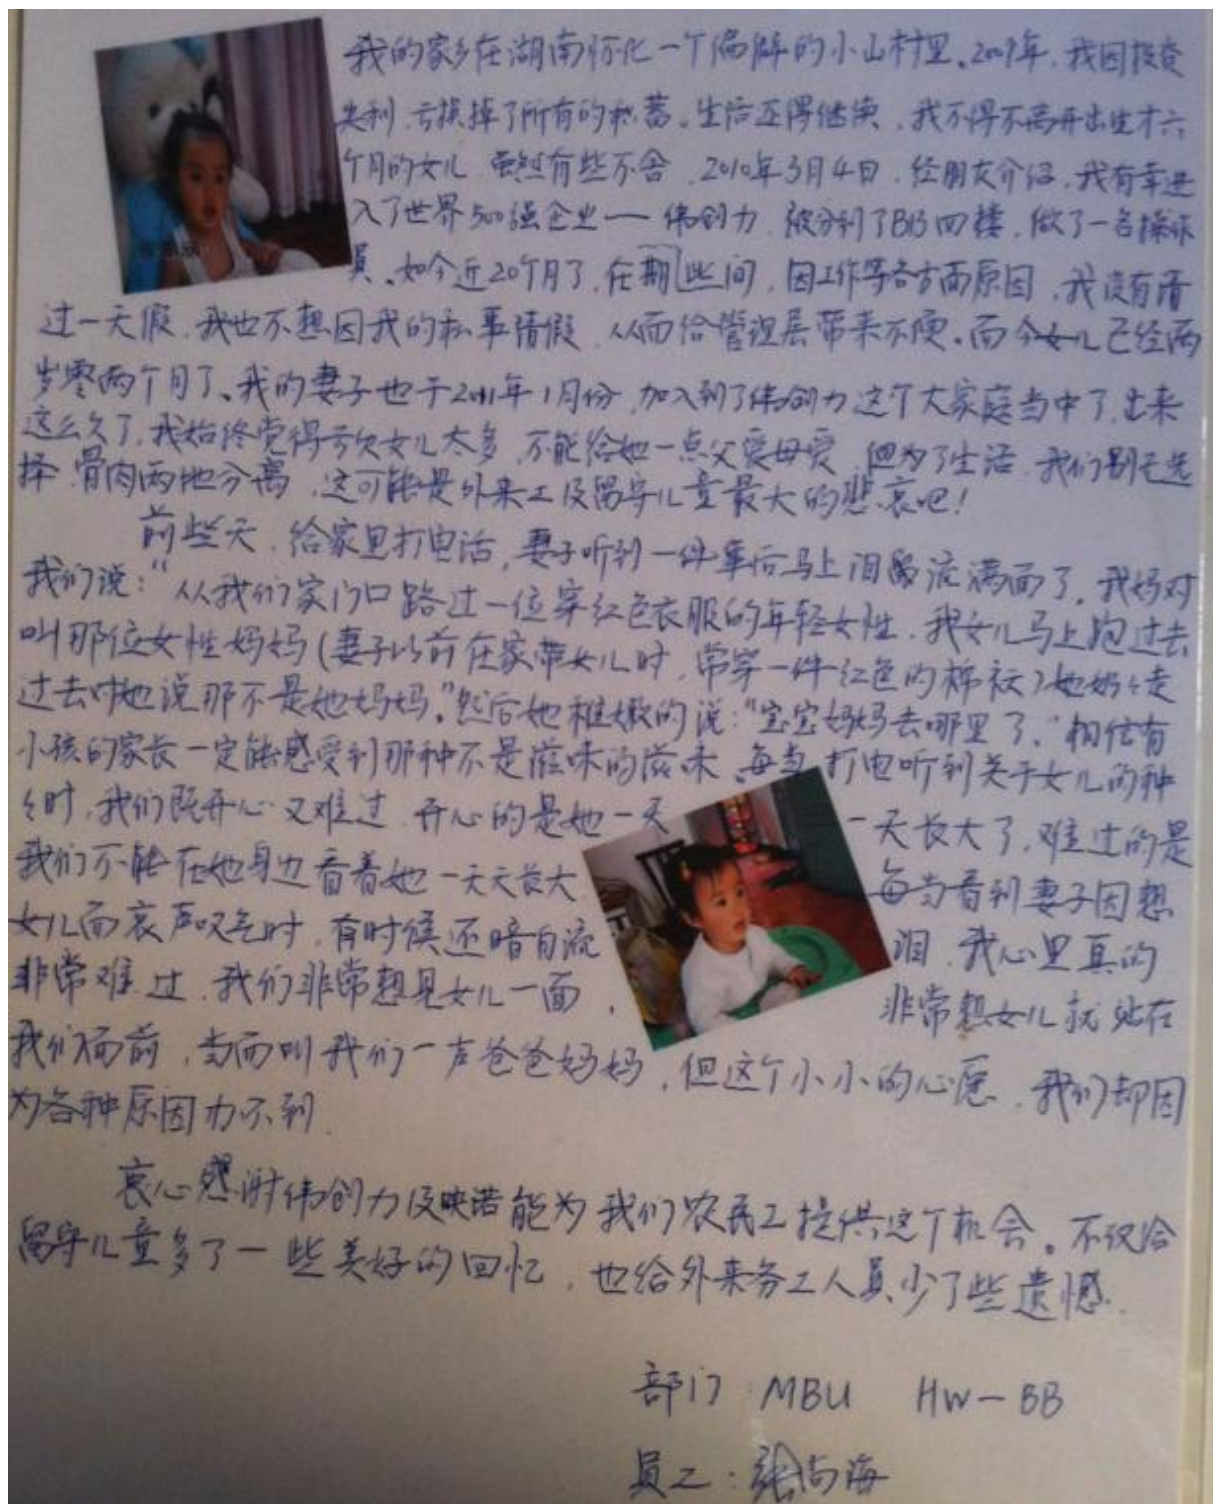 我的家乡在湖南怀化一个偏僻的小山村里、2009年,我因投资
失利,亏损掉了所有的积蓄。生活还得继续,我不得不离开出生才六
个月的女儿 虽然有些不舍,2010年3月4日,经朋友介绍,我有幸进
入了世界500强企业——伟创力,被分到了B13四楼,做了一名操作
员、如今近20个月了,在期此间,因工作等各方面原因,我没有请
过一天假,我也不想因我的私事请假,从而给管理层带来不便。而今女儿已经两
岁零两个月了、我的妻子也于2011年1月份,加入到了伟创力这个大家庭当中了,出来
这么久了,我始终觉得亏欠女儿太多,不能给她一点父爱母爱,但为了生活,我们别无选
择,骨肉两地分离,这可能是外来工及留守儿童最大的悲哀吧!
前些天,给家里打电话,妻子听到一件事后马上泪流满面了,我妈对
我们说:“从我们家门口路过一位穿红色衣服的年轻女性,我女儿马上跑过去
叫那位女性妈妈(妻子以前在家带女儿时,常穿一件红色的棉袄)她奶々走
过去对她说那不是她妈妈。”然后她稚嫩的说:“宝宝妈妈去哪里了.”相信有
小孩的家长一定能感受到那种不是滋味的滋味、每当打电听到关于女儿的种
々时,我们既开心又难过,开心的是她一天一天长大了,难过的是
我们不能在她身边看着她一天天长大 每当看到妻子因想
女儿而哀声叹气时,有时候还暗自流泪,我心里真的
非常难过,我们非常想见女儿一面,非常想女儿就站在
我们面前,当面叫我们一声爸爸妈妈,但这个小小的心愿,我们却因
为各种原因办不到.
衷心感谢伟创力及映诺能为我们农民工提供这个机会。不仅给
留守儿童多了一些美好的回忆,也给外来务工人员少了些遗憾.
部门:MBU HW-BB
员工:张尚海